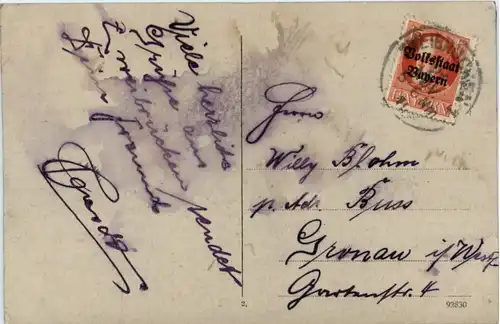 Viele herzliche
Grüße aus
Zweibrücken sendet
Dein Freund
Volksstaat
Bayern
Herrn
Willy Blohm
p. Adr. Buss
Gronau i/Westf.
Gartenstr. 4
2.
92830